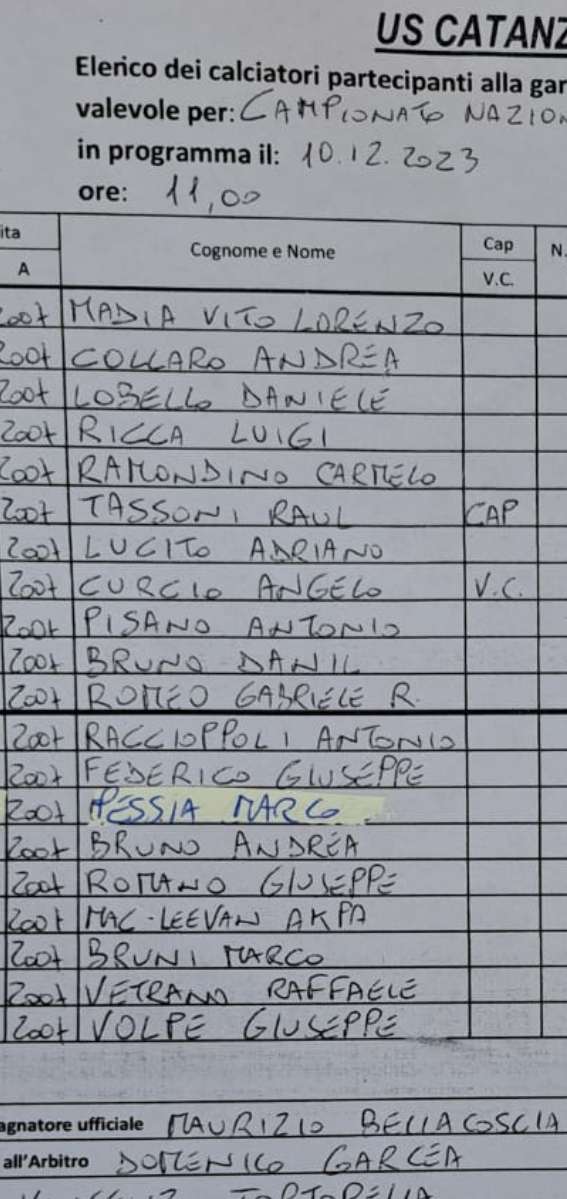 US CATANZ
Elenco dei calciatori partecipanti alla gar
valevole per: CAMPIONATO NAZION
in programma il: 10.12.2023
ore: 11,00
ita
A
Cognome e Nome
Cap
V.C.
N.
2007 MADIA VITO LORENZO
2007 COLLARO ANDREA
2007 LOBELLO DANIELE
2007 RICCA LUIGI
2007 RAMONDINO CARMELO
2007 TASSONI RAUL CAP
2007 LUCITO ADRIANO
2007 CURCIO ANGELO V.C.
2007 PISANO ANTONIO
2007 BRUNO DANIL
2007 ROMEO GABRIELE R.
2007 RACCIOPPOLI ANTONIO
2007 FEDERICO GIUSEPPE
2007 MESSIA MARCO
2007 BRUNO ANDREA
2007 ROMANO GIUSEPPE
2007 MAC-LEEVAN AKPA
2007 BRUNI MARCO
2007 VETRANO RAFFAELE
2007 VOLPE GIUSEPPE
agnatore ufficiale MAURIZIO BELLACOSCIA
all'Arbitro DOMENICO GARCEA
TORTORELLA